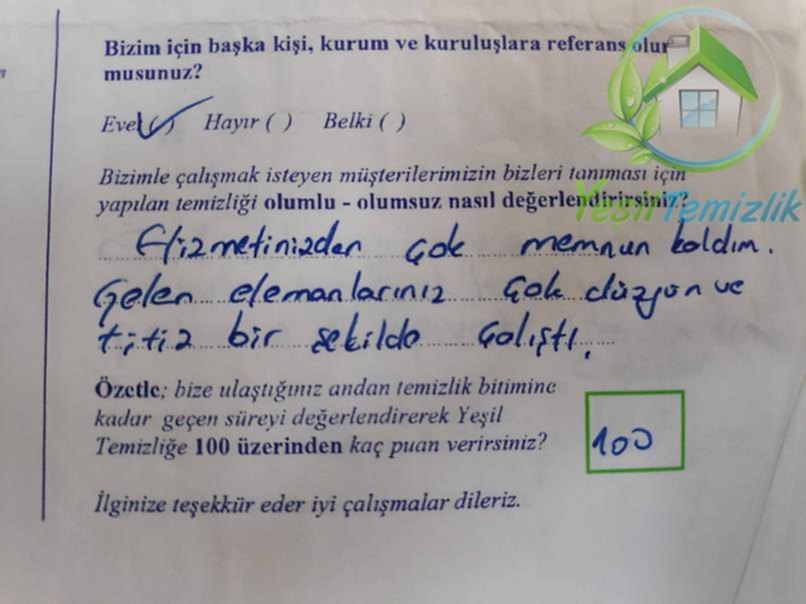 Bizim için başka kişi, kurum ve kuruluşlara referans olur
musunuz?
Evet (✓) Hayır ( ) Belki ( )
Bizimle çalışmak isteyen müşterilerimizin bizleri tanıması için
yapılan temizliği olumlu - olumsuz nasıl değerlendirirsiniz?
YeşilTemizlik
Hizmetinizden çok memnun kaldım.
Gelen elemanlarınız çok düzgün ve
titiz bir şekilde çalıştı.
Özetle; bize ulaştığınız andan temizlik bitimine
kadar geçen süreyi değerlendirerek Yeşil
Temizliğe 100 üzerinden kaç puan verirsiniz?
100
İlginize teşekkür eder iyi çalışmalar dileriz.